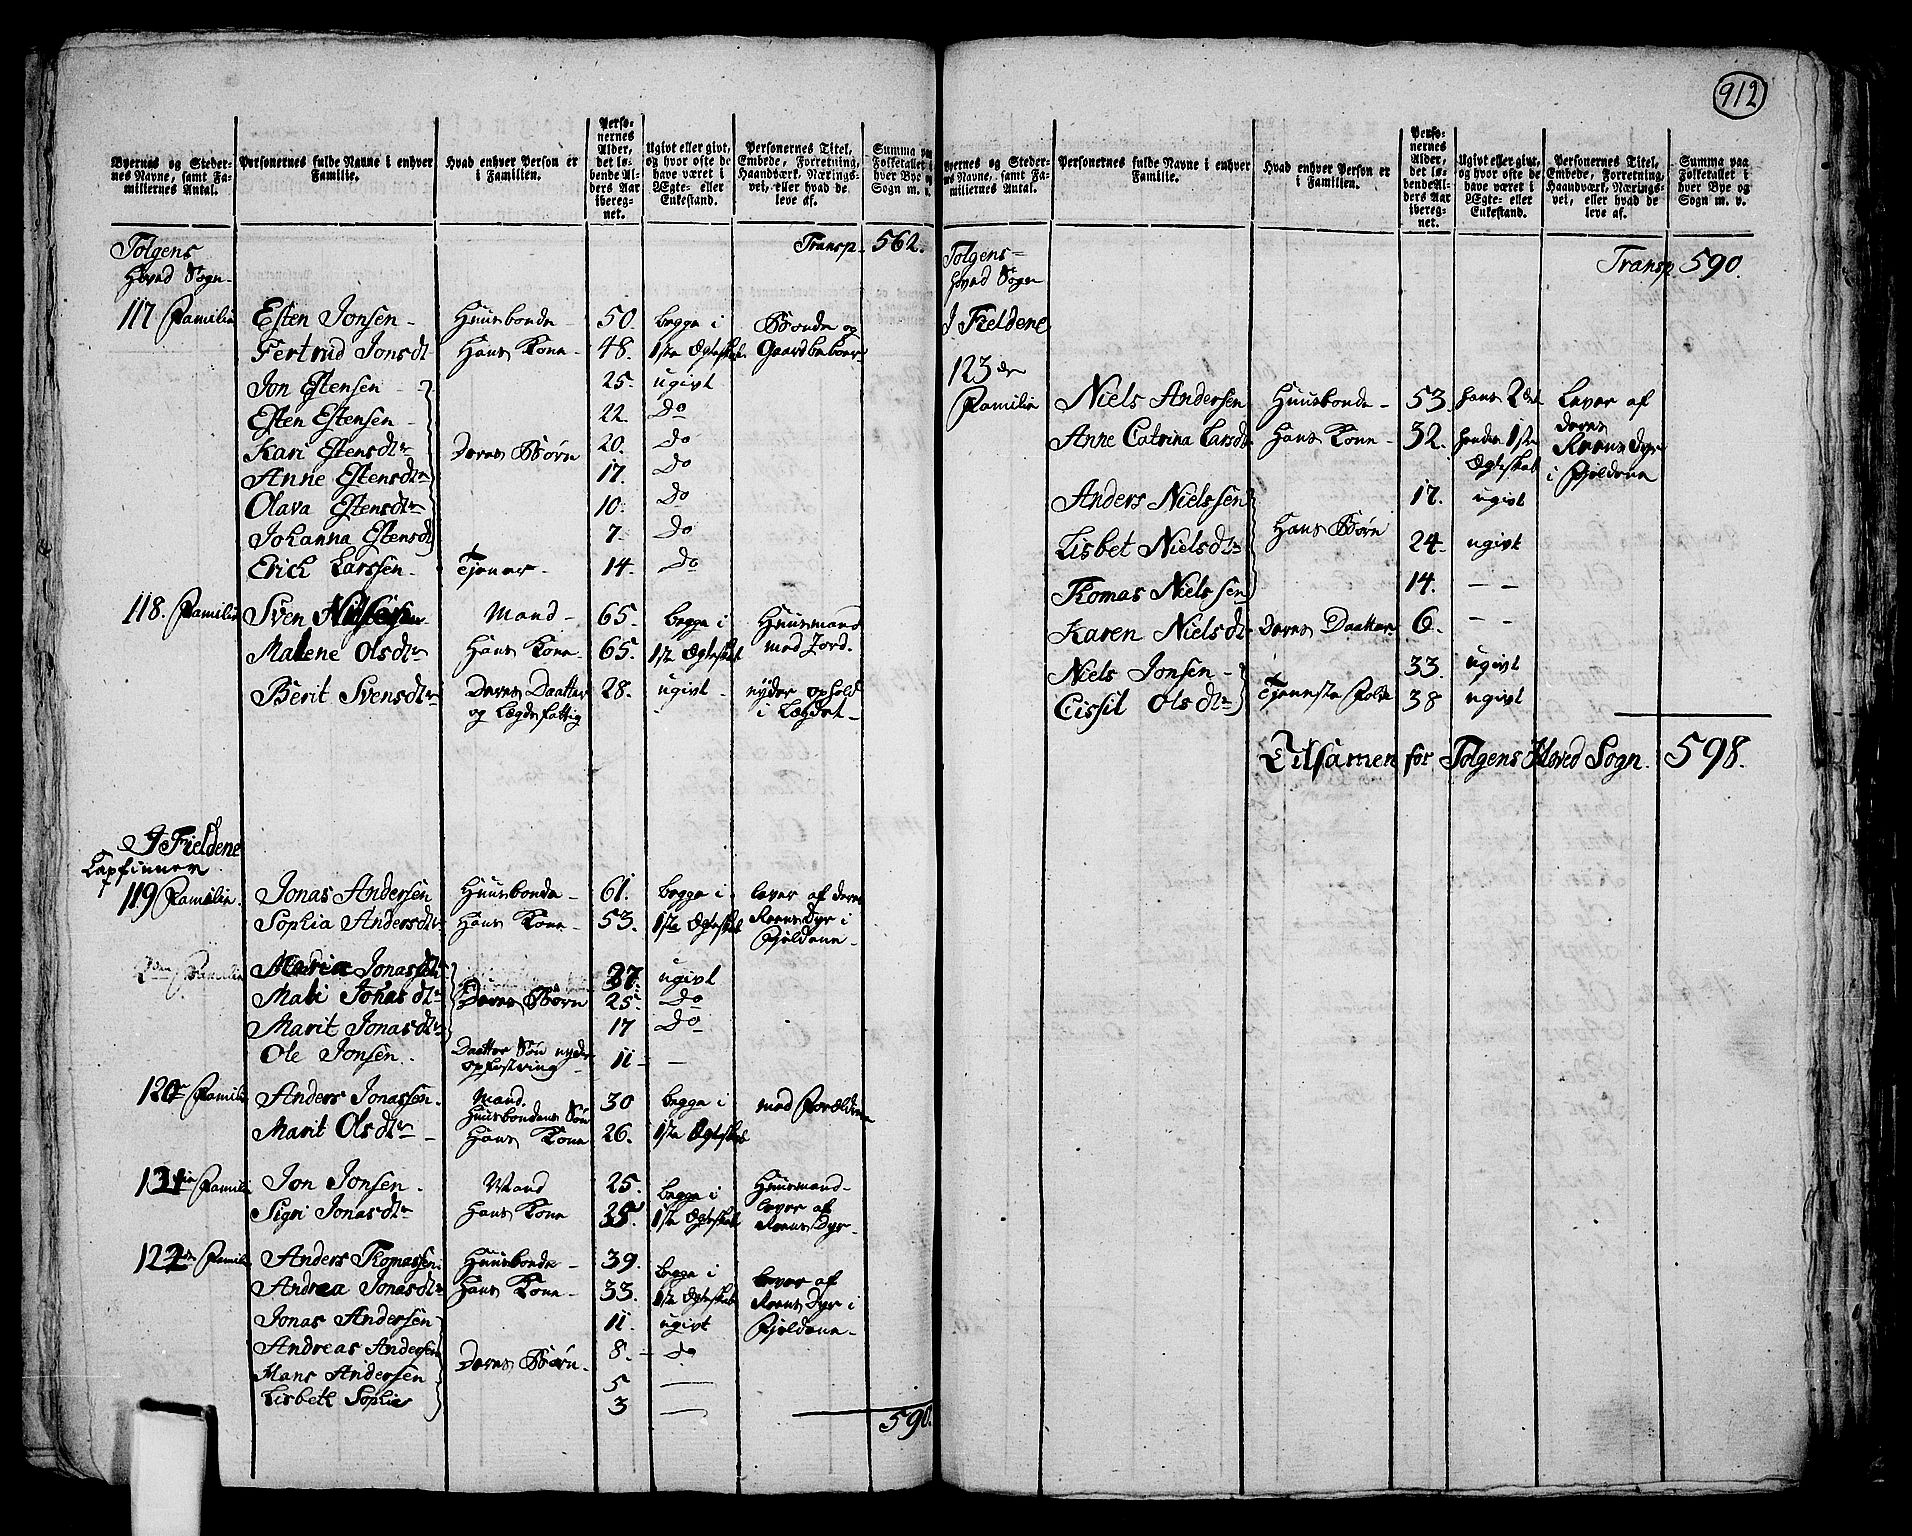 912
Byernes og Steder-
nes Navne, samt Fa-
milliernes Antal.
Personernes fulde Navne i enhver
Familie.
Hvad enhver Person er
i Familien.
Perso-
nernes
Alder,
det lø-
bende Al-
ders Aar
iberegnet.
Ugivt eller givt,
og hvor ofte de
have været i
Ægte- eller
Enkestand.
Personernes Titel,
Embede, Forretning,
Haandværk, Nærings-
vei, eller hvad de
leve af.
Summa paa
Folketallet i
hver Bye og
Sogn m. v.
Tolgens Transp. 562.
Hoved Sogn
117 Familie Esten Jonsen Huusbonde 50. begge i Bonde og
Jertrud Jonsdt Hans Kone 48. 1ste Ægteskab Gaardbeboer
Jon Estensen 25. ugivt
Esten Estensen 22. Do
Kari Estensdtr Deres Børn 20. Do
Anne Estensdtr 17. Do
Olava Estensdtr 10. Do
Johanna Estensd 7. Do
Erich Larssen Tjener 14. Do
118. Familie Sven Mand 65. begge i Huusmand
Malene Olsdtr Hans Kone 65. 1ste Ægteskab med Jord.
Berit Svensdtr Deres Daatter 28. ugivt nyder ophold
og Lægdsfattig i Lægdet
I Fieldene
Lapfinner
119 Familie. Jonas Andersen Huusbonde 61. begge i lever af deres
Sophia Andersdtr Hans Kone 53. 1ste Ægteskab Reens Dyr i
Fjeldene
Familie Maria Jonas 27. ugivt
Mali Jonasdtr Deres Børn 25. Do
Marit Jonasdtr 17 Do
Ole Jonsen Daatter Søn nyder 11 —
opfostring
120 Familie Anders Jonassen Mand. 30 begge i med Forældrene
Huusbondens Søn
Marit Olsdtr Hans Kone 26. 1ste Ægteskab
121 Familie Jon Jonsen Mand 25. begge i Huusmand
Sigri Jonasdtr Hans Kone 25. 1ste Ægteskab lever af
Reens Dyr
122 Familie Anders Thomassen Huusbonde 39. begge i lever af
Andrea Jonasdtr Hans Kone 33. 1ste Ægteskab Reens Dyr i
Jonas Andersen 11. ugivt Fjeldene
Andreas Andersen Deres Børn 8. Do
Hans Andersen 5 —
Lisbeth Sophia 3 —
590.
Byernes og Steder-
nes Navne, samt Fa-
milliernes Antal.
Personernes fulde Navne i enhver
Familie.
Hvad enhver Person er
i Familien.
Perso-
nernes
Alder,
det lø-
bende Al-
ders Aar
iberegnet.
Ugivt eller givt,
og hvor ofte de
have været i
Ægte- eller
Enkestand.
Personernes Titel,
Embede, Forretning,
Haandværk, Nærings-
vei, eller hvad de
leve af.
Summa paa
Folketallet i
hver Bye og
Sogn m. v.
Tolgens Transp 590.
Hoved Sogn
I Fieldene
123de
Familie Niels Andersen Huusbonde 53. hans 2det Lever af
Anne Catrina Larsdtr Hans Kone 32. hendes 1ste deres
Ægteskab Reens Dyr
i Fjeldene
Anders Nielssen 17. ugivt
Lisbet Nielsdtr Hans Børn 24. ugivt
Thomas Nielssen 14. — —
Karen Nielsdtr Deres Daatter 6. — —
Niels Jonsen 33. ugivt
Cissil Olsdtr Tjeneste Folk 38 ugivt
Tilsamen for Tolgens Hoved Sogn. 598.